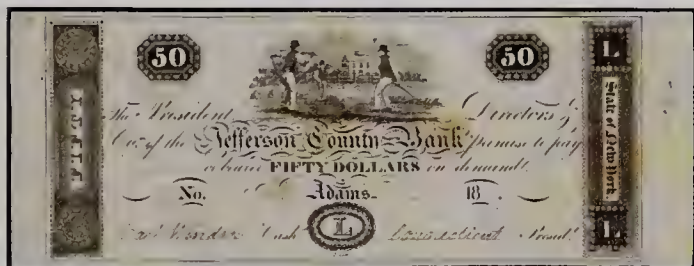 50 50
L
FIFTY
State of New York
The President Directors &
Co. of the Jefferson County Bank promise to pay
or bearer FIFTY DOLLARS on demand.
No. Adams. 18
L
Cash.r Connecticut Presid.t
L